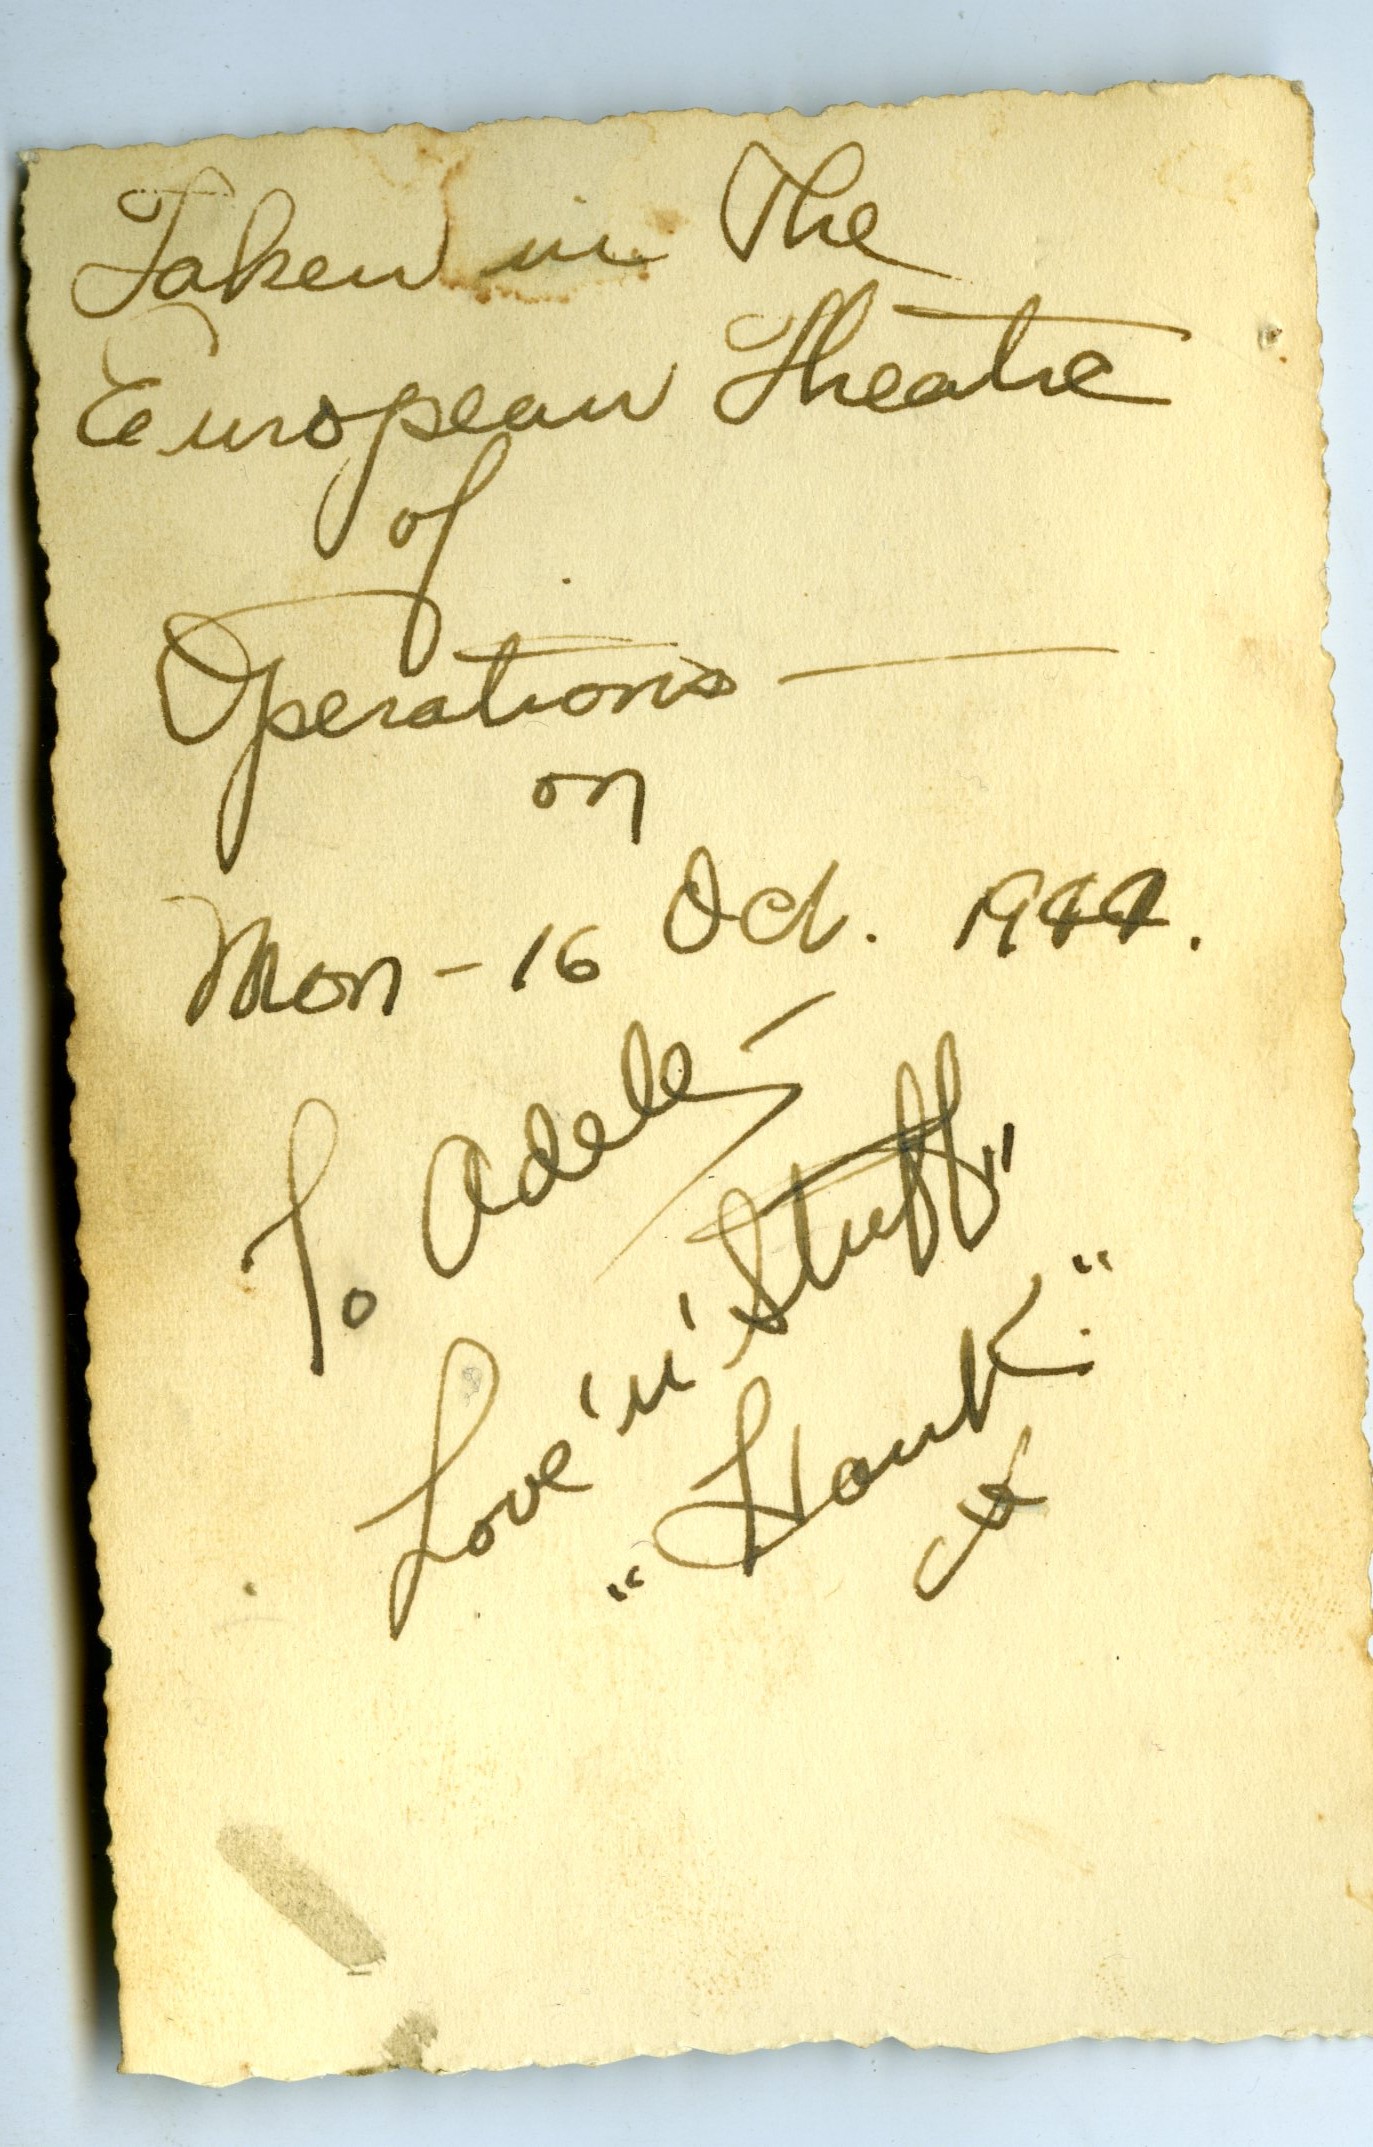 Taken in The
European Theatre
of
Operations —
on
Mon - 16 Oct. 1944.
To Adele —
Love 'n' Stuff"
"Hank."